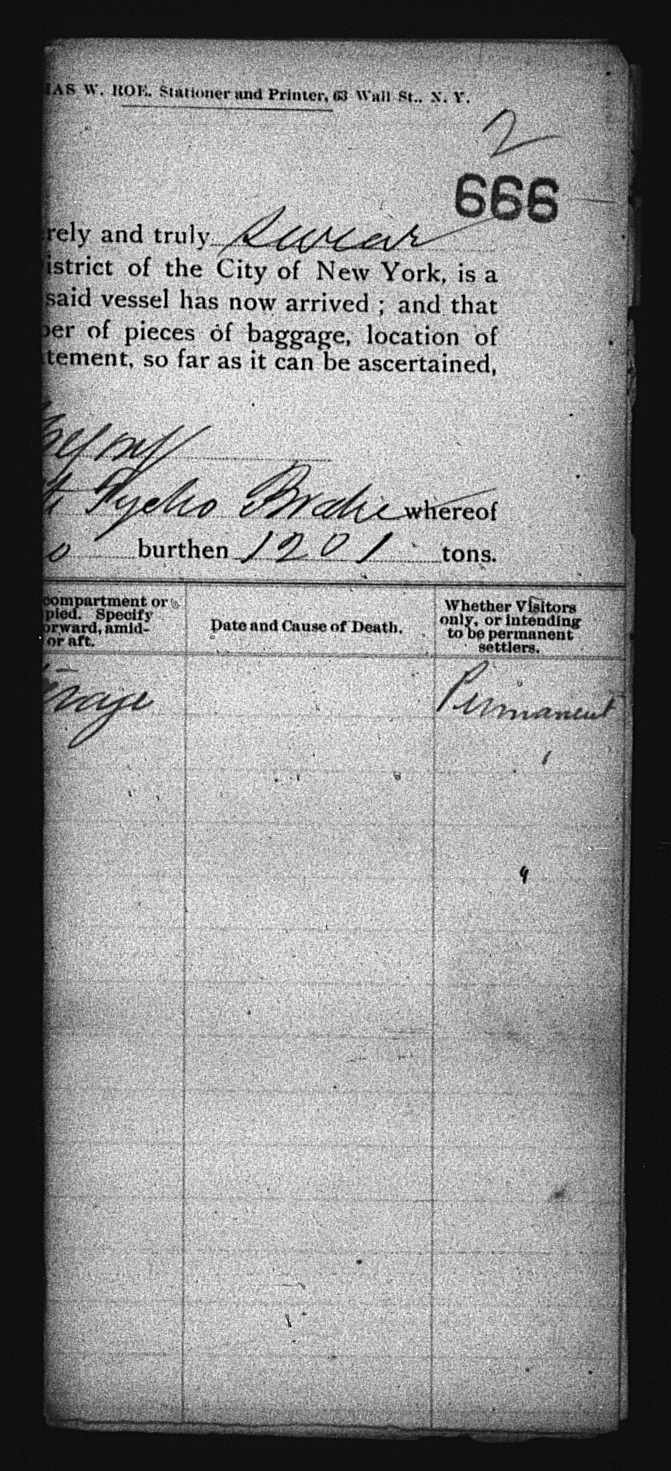 IAS W. ROE, Stationer and Printer, 63 Wall St., N. Y.
2
666
rely and truly swear
istrict of the City of New York, is a
said vessel has now arrived ; and that
ber of pieces of baggage, location of
tement, so far as it can be ascertained,
Tycho Brahe whereof
o burthen 1201 tons.
compartment or
pied. Specify
orward, amid-
or aft.
Date and Cause of Death.
Whether Visitors
only, or intending
to be permanent
settlers.
erage
Permanent